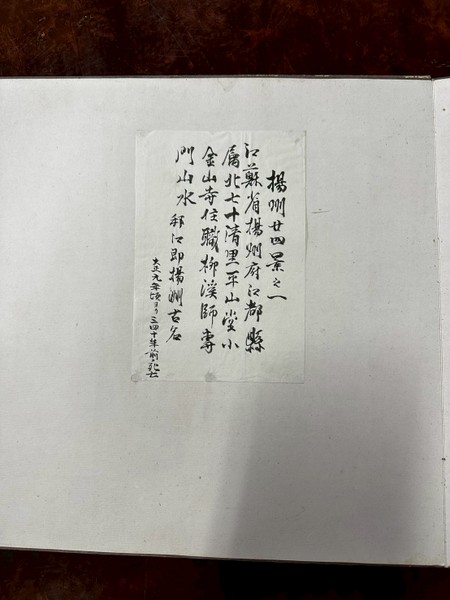 揚州廿四景之一
江蘇省揚州府江都縣
屬北七十清里平山堂小
金山寺住職柳溪師專
門山水 邗江即揚州古名
大正元年頃ヨリ三四十年前